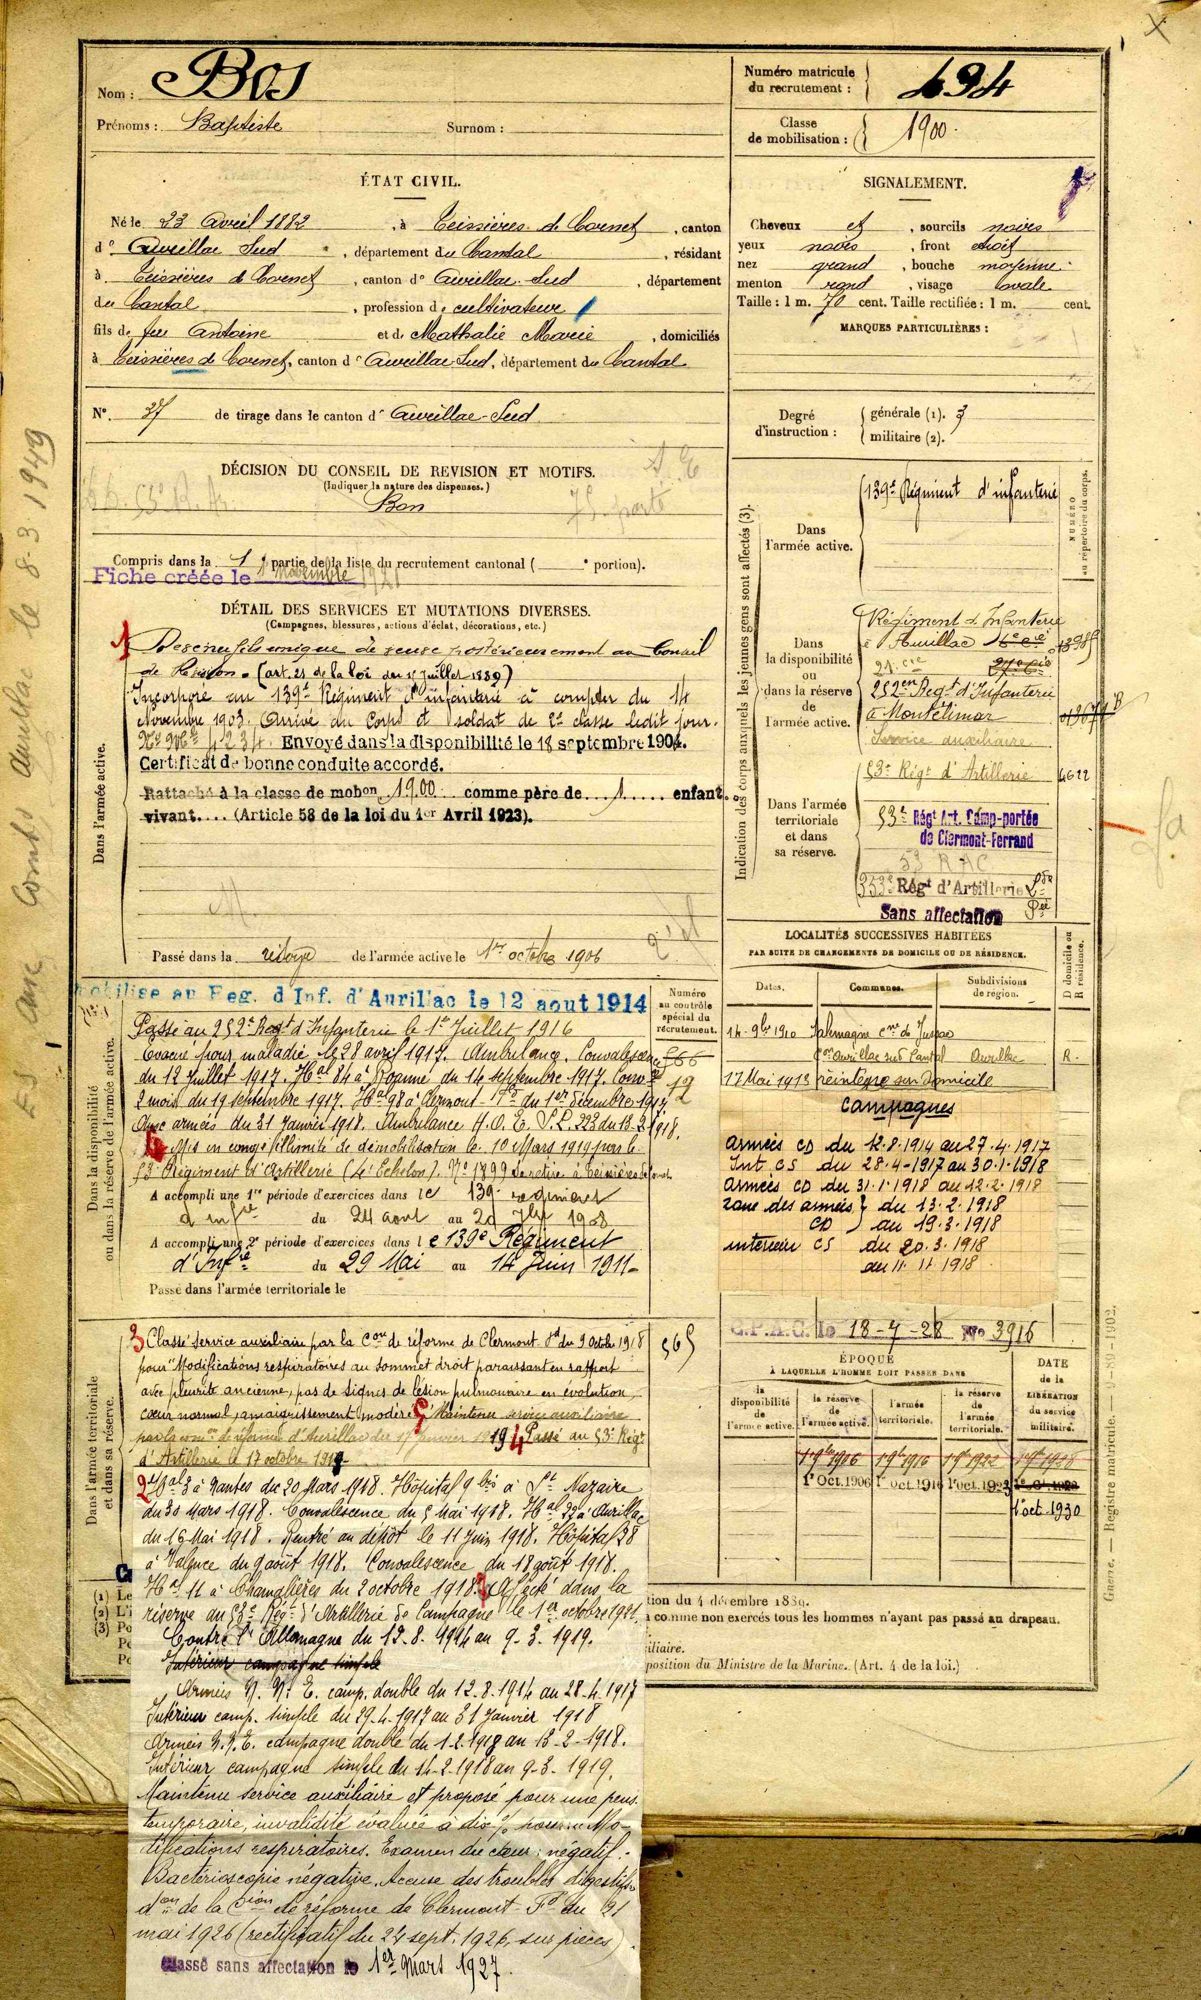 Nom : Bos
Prénoms : Baptiste Surnom :
Numéro matricule du recrutement : 494
Classe de mobilisation : 1900.
ÉTAT CIVIL.
Né le 23 Avril 1882, à Teissières de Cornet, canton
d' Aurillac Sud, département du Cantal, résidant
à Teissières de Cornet, canton d' Aurillac-Sud, département
du Cantal, profession de cultivateur
fils de feu Antoine et de Mathalie Marie, domiciliés
à Teissières de Cornet, canton d' Aurillac-Sud, département du Cantal
N° 37 de tirage dans le canton d' Aurillac-Sud.
SIGNALEMENT.
Cheveux et, sourcils noirs
yeux noirs, front étroit
nez grand, bouche moyenne
menton rond, visage ovale
Taille : 1 m. 70 cent. Taille rectifiée : 1 m. cent.
MARQUES PARTICULIÈRES :
Degré d'instruction : générale (1). 3
militaire (2).
DÉCISION DU CONSEIL DE REVISION ET MOTIFS.
(Indiquer la nature des dispenses.)
Bon
Compris dans la 1e partie de la liste du recrutement cantonal ( ° portion).
Fiche créée le 1 novembre 1921
DÉTAIL DES SERVICES ET MUTATIONS DIVERSES.
(Campagnes, blessures, actions d'éclat, décorations, etc.)
Dans l'armée active.
1 postérieurement au Conseil
de Révision. (art. 21 de la loi du 15 Juillet 1889)
Incorporé au 139e Régiment d'infanterie à compter du 14
Novembre 1903. Arrivé au Corps et soldat de 2e classe ledit jour.
No Mle 4234. Envoyé dans la disponibilité le 18 septembre 1904.
Certificat de bonne conduite accordé.
Rattaché à la classe de mobon 1900 comme père de 1 enfant
vivant (Article 58 de la loi du 1er Avril 1923).
Passé dans la réserve de l'armée active le 1er octobre 1906
Indication des corps auxquels les jeunes gens sont affectés (3).
NUMÉRO au répertoire du corps.
Dans l'armée active.
139e Régiment d'infanterie
Dans la disponibilité ou dans la réserve de l'armée active.
Régiment d'Infanterie
à Aurillac
252e Regt d'Infanterie
à Montélimar
Service auxiliaire
Dans l'armée territoriale et dans sa réserve.
53e Régt d'Artillerie 4622
53e Régt Art. Camp-portée
de Clermont-Ferrand
53 RAC
353e Régt d'Artillerie Lde
Pée
Sans affectation
LOCALITÉS SUCCESSIVES HABITÉES
PAR SUITE DE CHANGEMENTS DE DOMICILE OU DE RÉSIDENCE.
Dates. Communes. Subdivisions de région. D domicile ou R résidence.
14-9bre 1910 Salmagne Cne de Jussac
Con Aurillac sud Cantal Aurillac R.
17 Mai 1913 réintègre son Domicile
Dans la disponibilité ou dans la réserve de l'armée active.
Numéro au contrôle spécial du recrutement.
566
12
mobilisé au Reg. d'Inf. d'Aurillac le 12 aout 1914
Passé au 252e Regt d'Infanterie le 1er Juillet 1916
Evacué pour maladie le 28 avril 1917. Ambulance. Convalescence
du 12 Juillet 1917. Hal 84 à Roanne du 14 septembre 1917. Convce
2 mois du 19 septembre 1917. Hal 98 à Clermont-Fd du 1er décembre 1917
Aux armées du 31 Janvier 1918. Ambulance H.O.E. S.L. 223 du 13-2-1918.
6 Mis en congé illimité de démobilisation le 10 Mars 1919 par le
53e Régiment d'Artillerie (4e Echelon). No 1399 Se retire à Teissières de Cornet
A accompli une 1re période d'exercices dans le 139e régiment
d'infie du 24 aout au 20 7bre 1908
A accompli une 2e période d'exercices dans le 139e Régiment
d'Infie du 29 Mai au 14 Juin 1911
Passé dans l'armée territoriale le
campagnes
armées CD du 12.8.1914 au 27.4.1917
Int CS du 28-4-1917 au 30.1.1918
armées CD du 31.1.1918 au 12.2.1918
zone des armées du 13.2.1918
CD au 19.3.1918
intérieur CS du 20.3.1918
au 11.11.1918
C.P.A.C. le 18-7-28 No 3916
ÉPOQUE
À LAQUELLE L'HOMME DOIT PASSER DANS
la disponibilité de l'armée active.
la réserve de l'armée active.
l'armée territoriale.
la réserve de l'armée territoriale.
DATE de la LIBÉRATION du service militaire.
1er 9bre 1906 1er 9bre 1916 1er 9bre 1922 1er 9bre 1928
1er Oct. 1906 1er Oct. 1916 1er Oct. 1923
1er oct. 1930
Dans l'armée territoriale et dans sa réserve.
565
3 Classé service auxiliaire par la Con de réforme de Clermont-Fd du 9 Octobre 1918
pour "Modifications respiratoires au sommet droit paraissant en rapport
avec pleurite ancienne, pas de signes de lésion pulmonaire en évolution,
coeur normal, amaigrissement modéré. 5 Maintenu service auxiliaire
par la comon de réforme d'Aurillac du 17 janvier 1919 4 Passé au 53e Régt
d'Artillerie le 17 octobre 1918
2 Hal 3 à Nantes du 20 Mars 1918. Hôpital 9 bis à St Nazaire
du 30 Mars 1918. Convalescence du 5 Mai 1918. Hal 22 à Aurillac
du 16 Mai 1918. Rentré au dépôt le 11 Juin 1918. Hôpital 38
à Valence du 9 août 1918. Convalescence du 18 août 1918.
Hal 11 à Chamalières du 2 octobre 1918. Affecté dans la
réserve du 53e Régt d'Artillerie de Campagne le 1er octobre 1921.
Contre l'Allemagne du 12-8-1914 au 9-3-1919.
Intérieur campagne simple
Armées N. N. E. camp. double du 12-8-1914 au 28-4-1917
Intérieur camp. simple du 29-4-1917 au 31 Janvier 1918
Armées N.N.E. campagne double du 1-2-1918 au 13-2-1918.
Intérieur campagne simple du 14-2-1918 au 9-3-1919.
Maintenu service auxiliaire et proposé pour une pens.
temporaire, invalidité évaluée à dix % pour Mo-
difications respiratoires. Examen du coeur, négatif.
Bactérioscopie négative. Accuse des troubles digestifs
don de la Cion de réforme de Clermont-Fd du 21
mai 1926 (rectificatif du 24 sept. 1926, sur pièces).
Classé sans affectation le 1er Mars 1927.
tion du 4 décembre 1889.
comme non exercés tous les hommes n'ayant pas passé au drapeau.
iliaire.
position du Ministre de la Marine. (Art. 4 de la loi.)
Guerre. — Registre matricule. 9-89-1902.
Aurillac le 8-3-1949